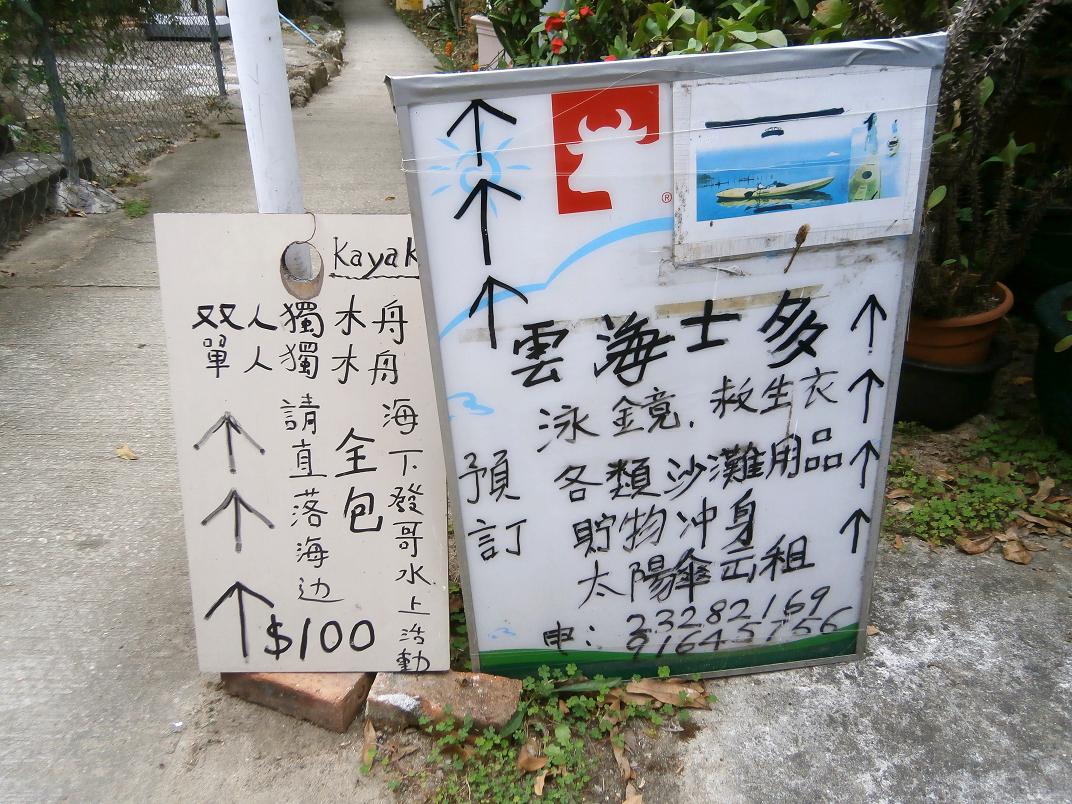 Kayak
双人獨木舟
單人獨木舟
海下發哥水上活動
全包
請直落海边
$100
®
雲海士多
泳鏡.救生衣
各類沙灘用品
貯物冲身
太陽傘出租
預訂
电：23282169
91645756